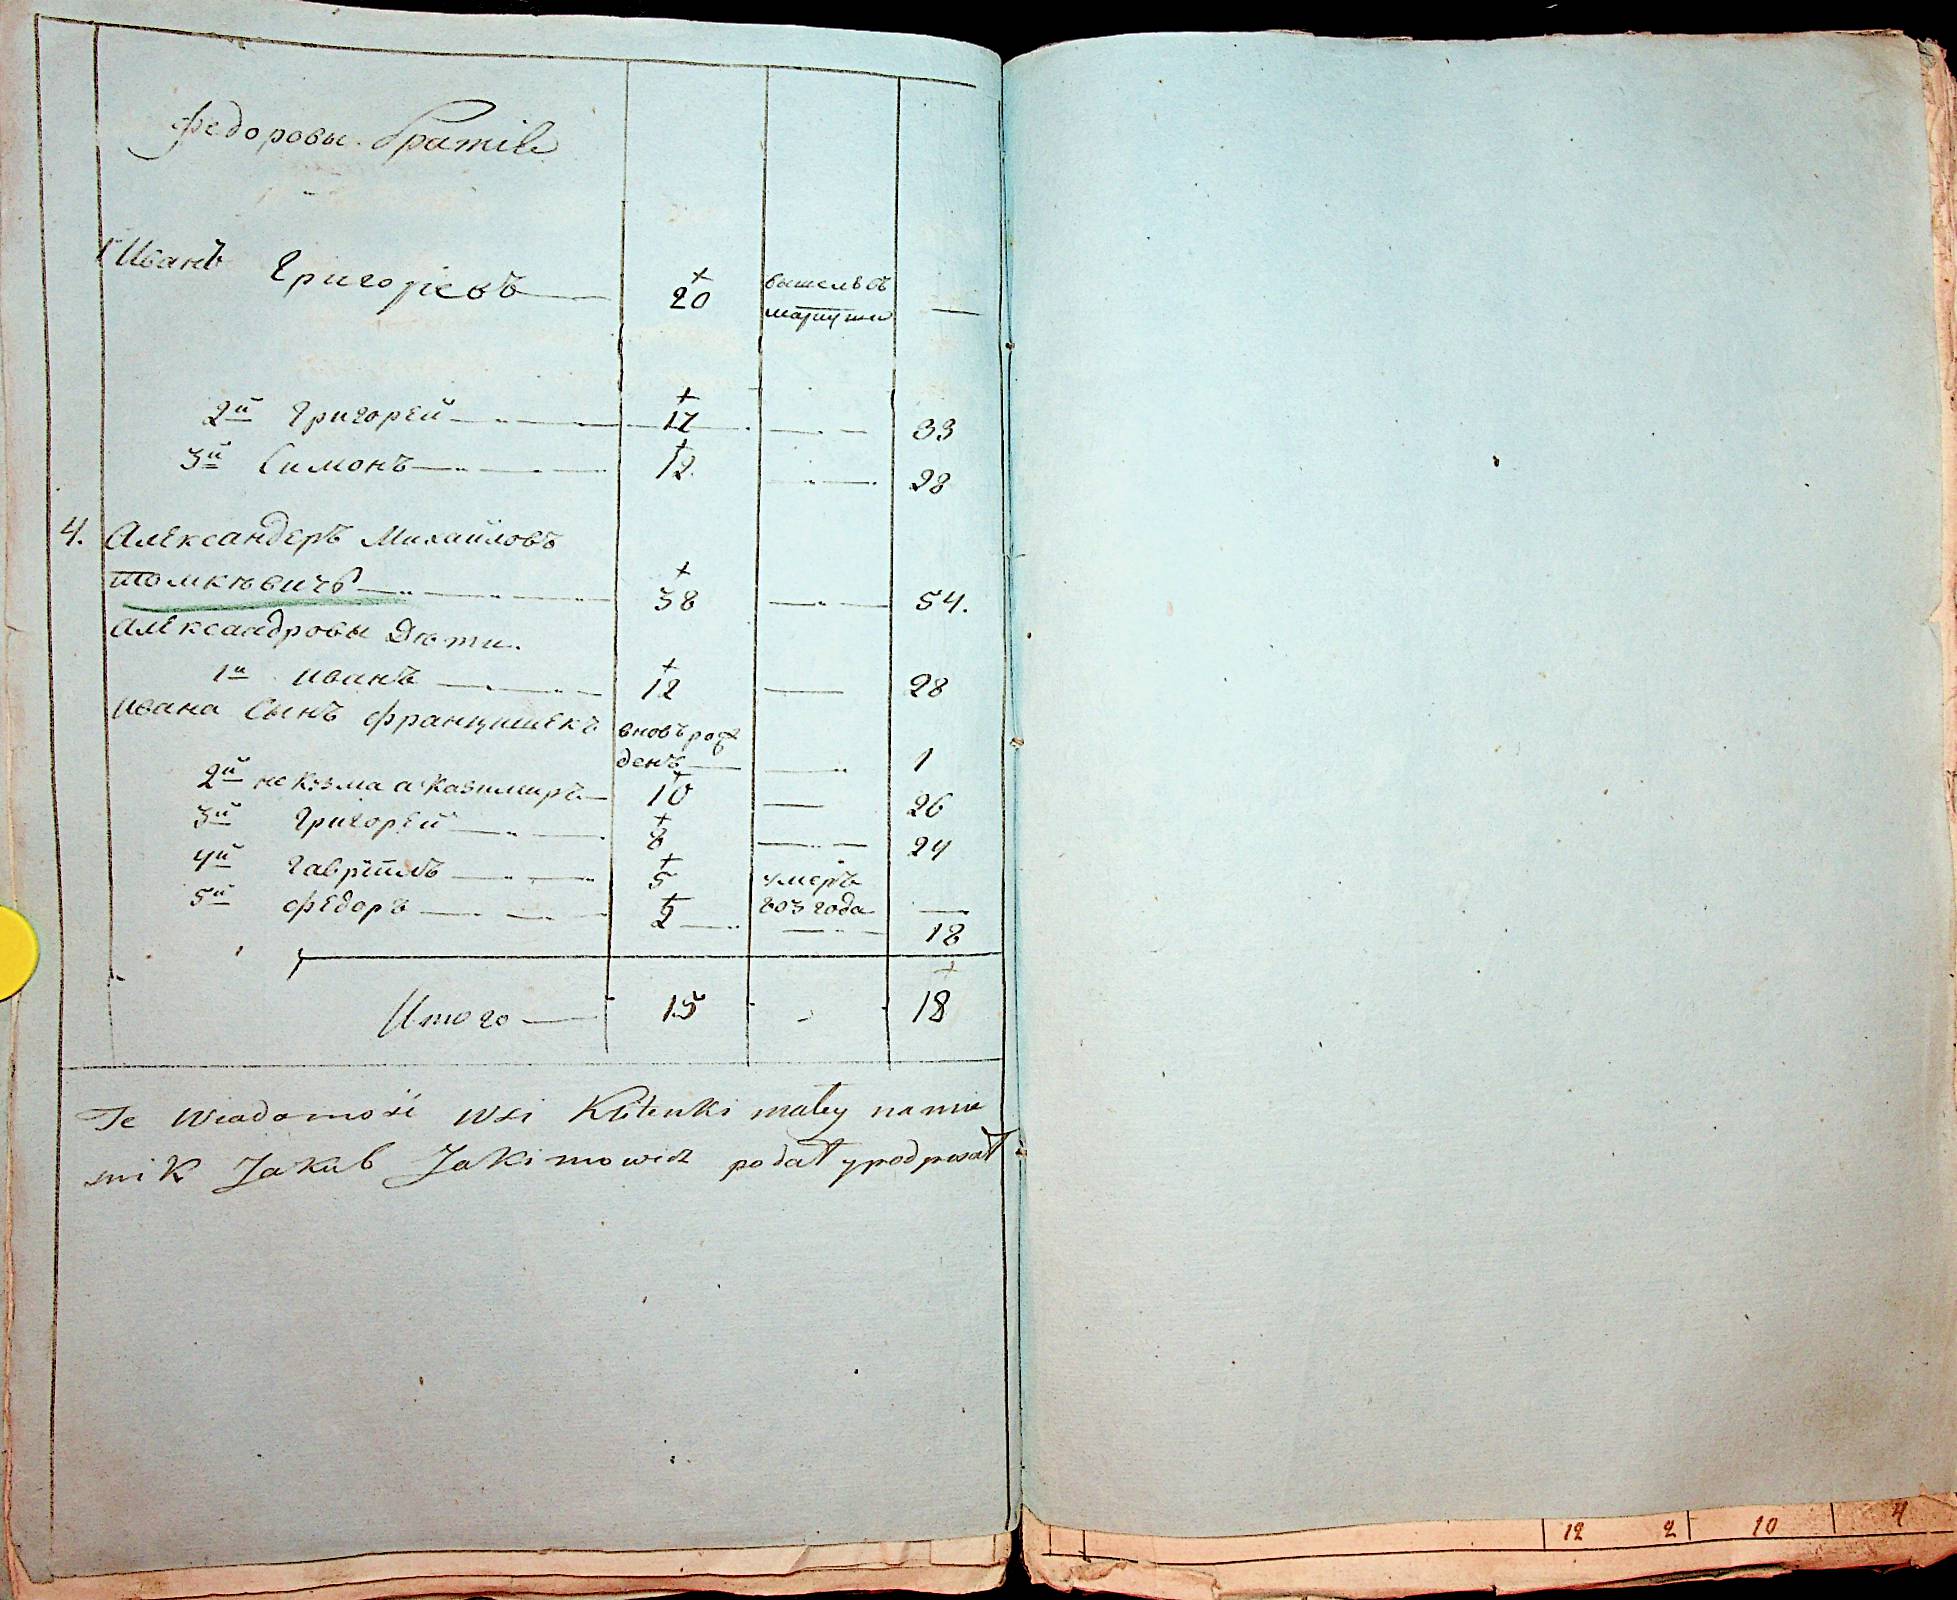 Федоровы братiе
1й Иванъ Григорiевъ — + 20 вышелъ въ —
2й Григорей — + 17 — 33
3й Симонъ — + 12 — 28
4. Александеръ Михайловъ
Томкѣвичъ — + 38 — 54.
Александровы Дѣти.
1й иванъ — + 12 — 28
ивана Сынъ францишекъ вновь рож
денъ — — 1
2й не Кузма а Казимиръ — + 10 — 26
3й Григорей — + 8 — 24
4й Гаврiилъ — + 5 умеръ
803 года —
5й федоръ — + 2 — 18
Итого — 15 - + 18
Te Wiadomość wsi małey namie
snik Jakub Jakimowicz podał y podpisał
12 2 10 4